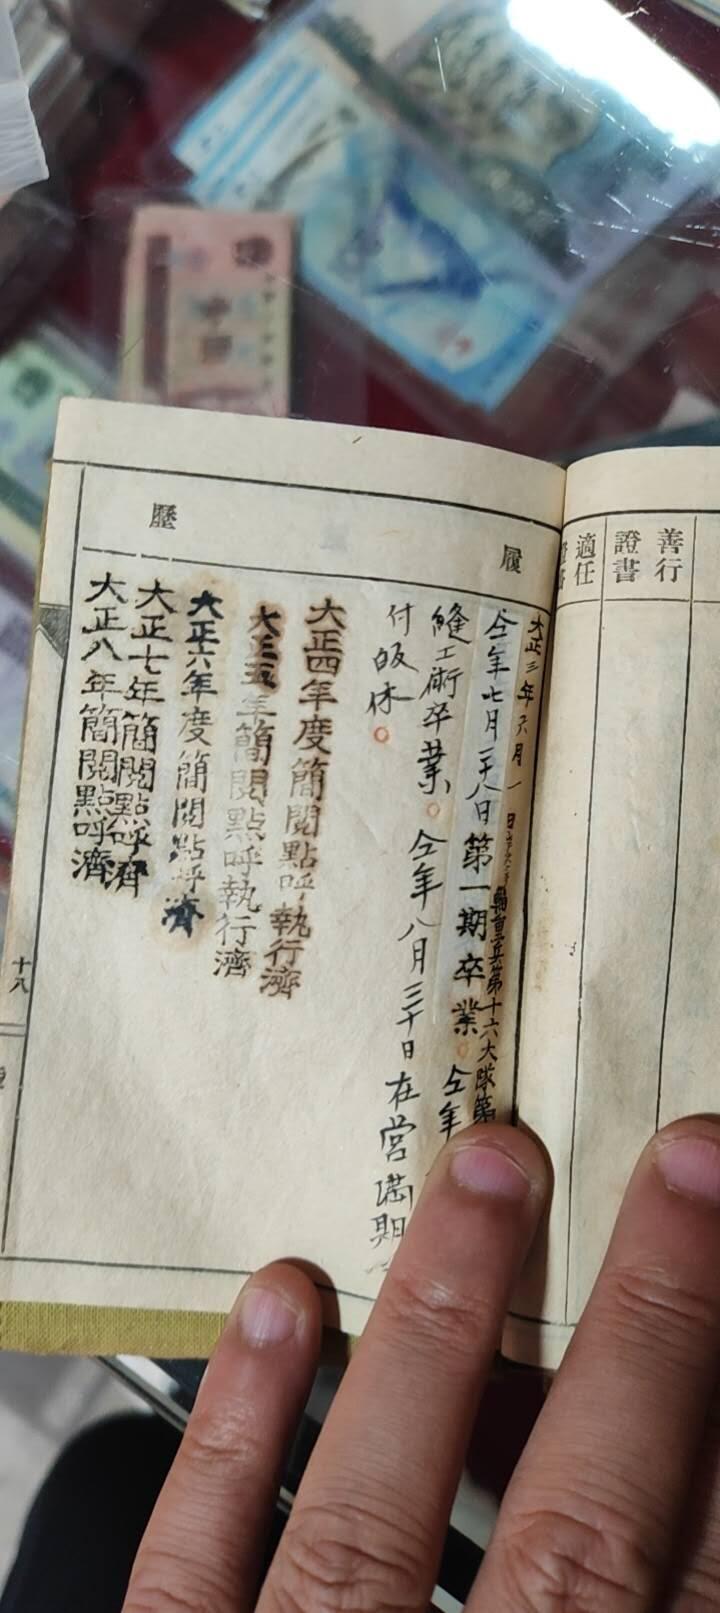 善行證書
適任證書
履歷
大正三年六月一日 輜重兵第十六大隊第
仝年七月二十八日第一期卒業 仝年
縫工術卒業 仝年八月三十日在営満期
付皈休
大正四年度簡閲點呼執行濟
大正五年簡閲點呼執行濟
大正六年度簡閲點呼濟
大正七年簡閲點呼濟
大正八年簡閲點呼濟
十八